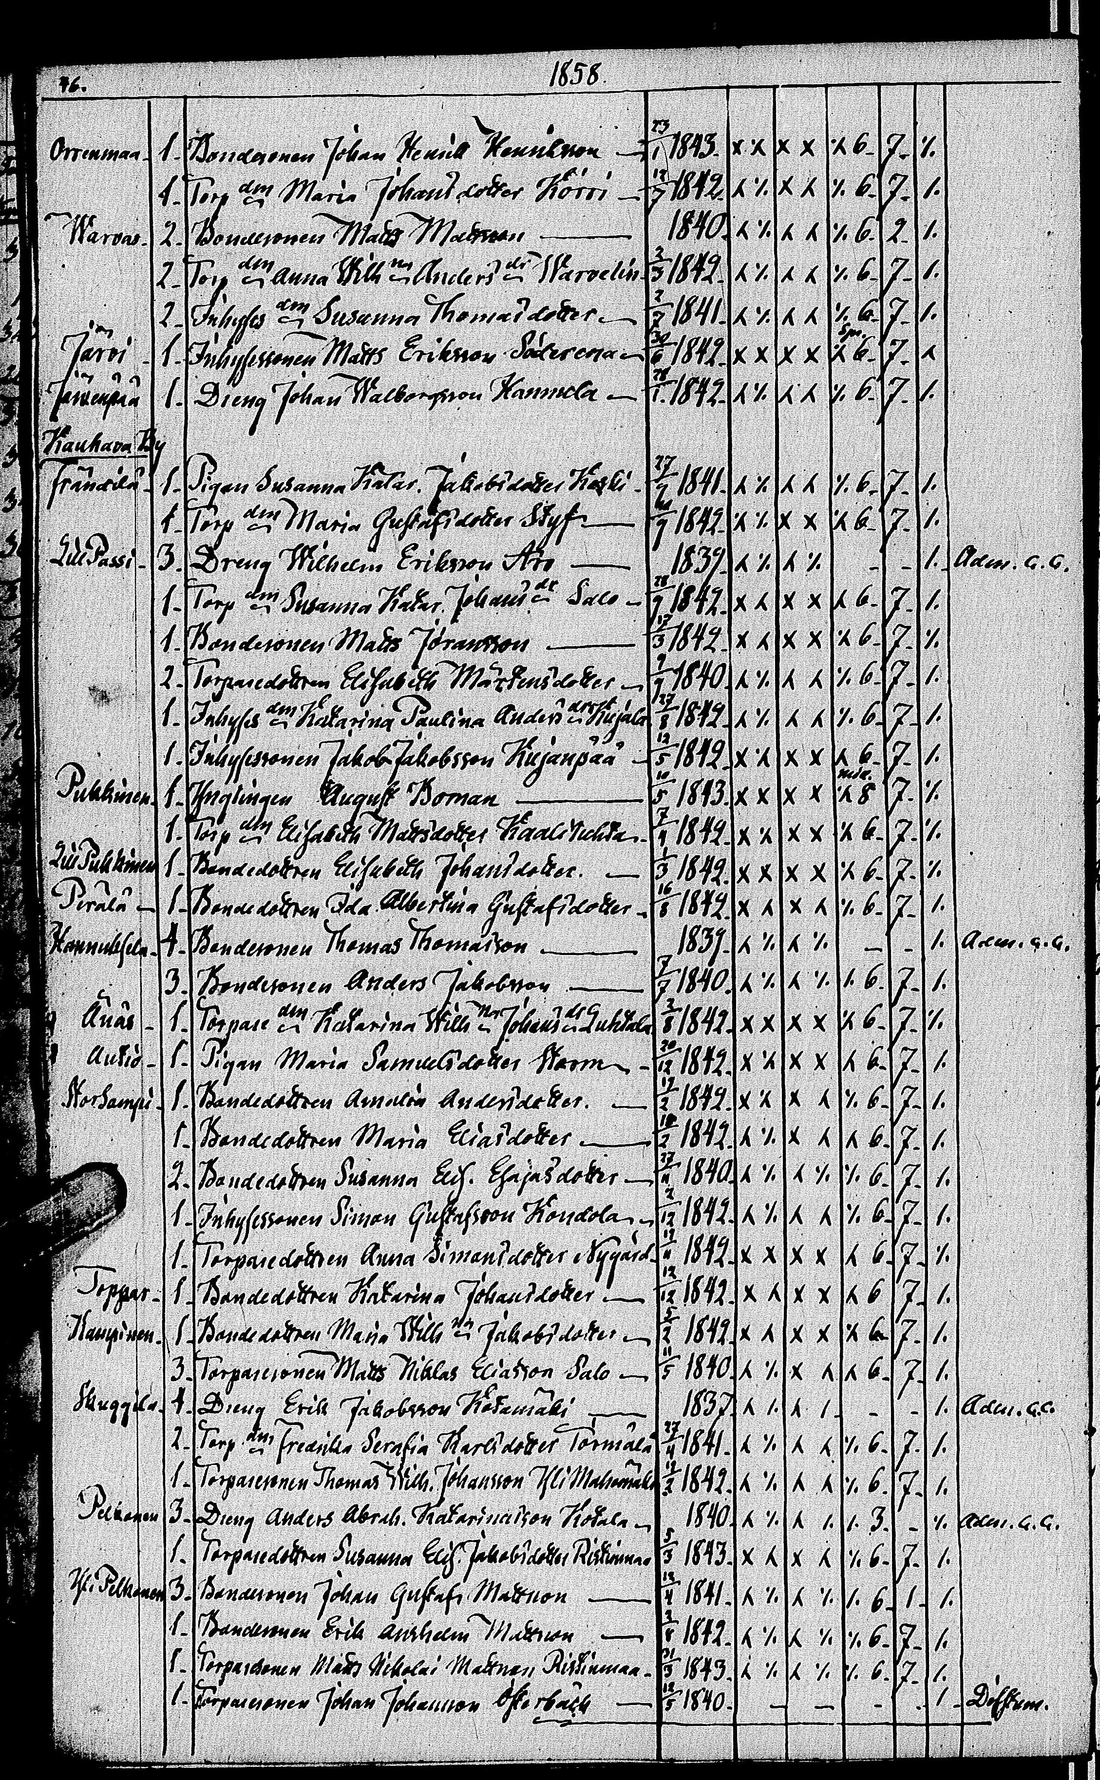 46.
1858.
Orrenmaa - 1 - Bondesonen Johan Henrik Henriksson — 23/1 1843. x x x x 6 - 7 -
1 - Torp den Maria Johans dotter Körri — 12/7 1842 6 - 7 -
Warvas - 2 - Bondesonen Matts Mattsson — 1840 6 - 2 -
2 - Torp den Anna Wilh na Anders dr Warvelin 2/3 1842 6 - 7 -
2 - Inhyses den Susanna Thomas dotter — 2/7 1841 6 - 7 -
Järvi - 1 - Inhysessonen Matts Eriksson — 30/6 1842 x x x x 6 - 7 -
Järvenpää 1 - Dreng Johan Walborgsson Hannula — 28/1 1842 6 - 7 -
Kauhava By
Frändilä - 1 - Pigan Susanna Katar. Jakobsdotter Koski - 27/7 1841 6 - 7 -
1 - Torp den Maria Gustafsdotter Styf — 1842 6 - 7 -
Lill Passi - 3 - Dreng Wilhelm Eriksson Aro — 1839 - - Adm. a. a.
1 - Torp den Susanna Katar. Johans dr Salo - 28/9 1842 6 - 7 -
1 - Bondesonen Matts Jöransson — 17/3 1842 6 - 7 -
2 - Torparedottren Elisabeth Mårtensdotter — 9/9 1840 6 - 7 -
1 - Inhyses den Katarina Paulina Anders dotter Kujala 27/8 1842 6 - 7 -
1 - Inhysessonen Jakob Jakobsson Kujanpää - 12/5 1842 6 - 7 -
Pukkinen - 1 - Ynglingen August Boman — 10/5 1843 x x x x 8 7 -
1 - Torp den Elisabeth Mattsdotter 7/9 1842 6 - 7 -
Lill Pukkinen 1 - Bondedottren Elisabeth Johansdotter. — 1/3 1842 x x x x 6 7 -
Perälä - 1 - Bondedottren Ida Albertina Gustafsdotter - 16/8 1842 6 - 7 -
Hannuksela - 4 - Bondesonen Thomas Thomasson — 1839 - - Adm. a. a.
3 - Bondesonen Anders Jakobsson — 7/7 1840 6 - 7 -
Änäs - 1 - Torpare den Katarina Wilh na Johans dr Luhtala 2/8 1842 x x x x 6 - 7 -
Autio - 1 - Pigan Maria Samuelsdotter Storm - 20/12 1842 6 - 7 -
Storkampi - 1 - Bondedottren Amalia Andersdotter. — 17/2 1842 6 - 7 -
1 - Bondedottren Maria Eliasdotter — 10/2 1842 6 - 7 -
2 - Bondedottren Susanna Elis. Esajasdotter — 27/11 1840 6 - 7 -
1 - Inhysessonen Simon Gustafsson Kondola - 2/12 1842 6 - 7 -
1 - Torparedottren Anna Simonsdotter Nygård 17/11 1842 x x x x 6 - 7 -
Toppar - 1 - Bondedottren Katarina Johansdotter — 12/12 1842 6 7 -
Kampinen - 1 - Bondedottren Maria Wilh na Jakobsdotter — 5/2 1842 6 - 7 -
3 Torparesonen Matts Niklas Eliasson Salo — 11/5 1840 6 - 7 -
Skuggila - 4 - Dreng Erik Jakobsson Katamäki — 1837 - - Adm. a. a.
2 - Torp den Fredrika Serafia Karlsdotter Tormälä 27/4 1841 6 - 7 -
1 - Torparesonen Thomas Wilh. Johansson 12/2 1842 6 - 7 -
Pelkonen 3 - Dreng Anders Abrah. Katarinasson Kotala — 1840 3 - Adm. a. a.
1 - Torparedottren Susanna Elis. Jakobsdotter Ristinmaa 5/3 1843 6 - 7 -
Yli Pelkonen 3 - Bondesonen Johan Gustaf Mattsson — 12/4 1841 6 - 1 -
1 - Bondesonen Erik Anshelm Mattsson — 1842 6 - 7 -
1 - Torparesonen Matts Nikolai Mattsson Ristinmaa - 21/3 1843 6 - 7 -
1 - Torparesonen Johan Johansson Österback — 12/5 1840 - - - 1 - Döfstum.